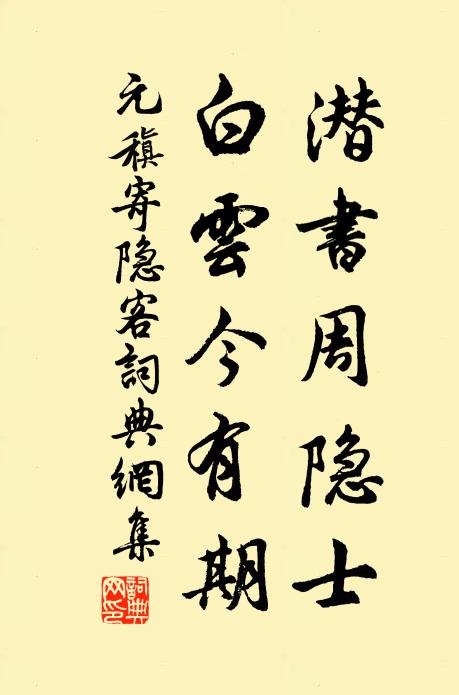 潜書周隐士
白雲今有期
元稹寄隐客詞典網集
詞典網印